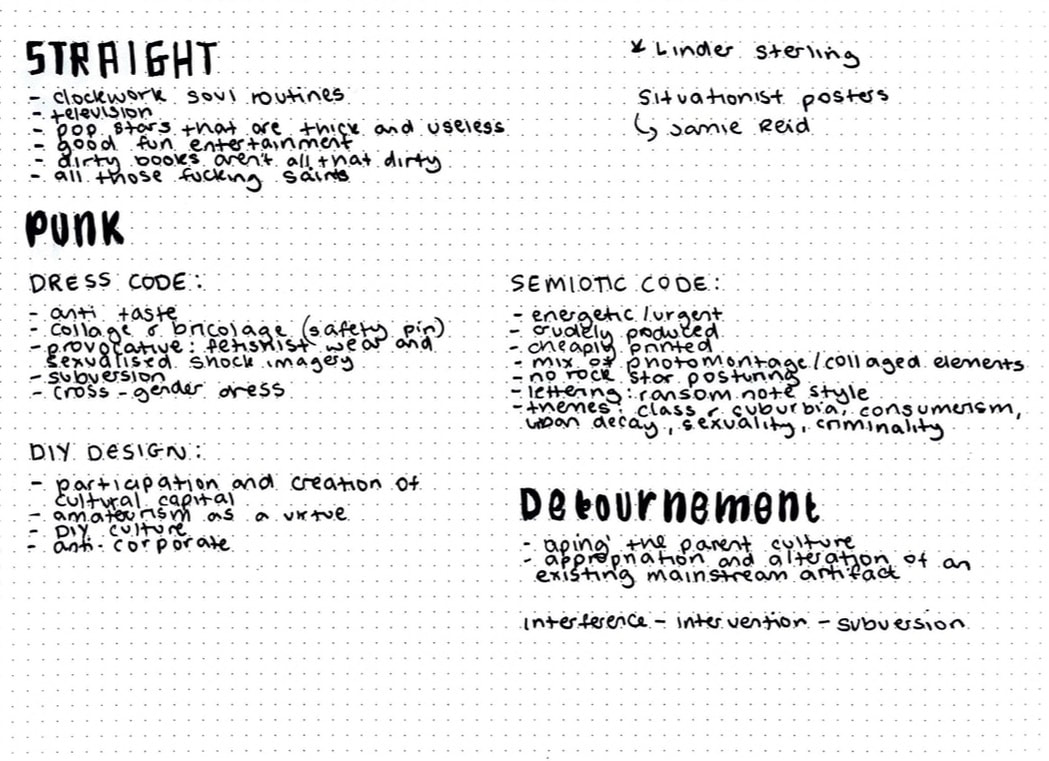 STRAIGHT
- clockwork soul routines
- television
- pop stars that are thick and useless
- good fun entertainment
- dirty books aren't all that dirty
- all those fucking saints
* Linder Sterling
Situationist posters
↳ Jamie Reid
PUNK
DRESS CODE:
- anti taste
- collage & bricolage (safety pin)
- provocative: fetishist wear and
sexualised shock imagery
- subversion
- cross-gender dress
DIY DESIGN:
- participation and creation of
cultural capital
- amateurism as a virtue
- DIY culture
- anti-corporate
SEMIOTIC CODE:
- energetic/urgent
- crudely produced
- cheaply printed
- mix of photomontage/collaged elements
- no rock star posturing
- lettering: ransom note style
- themes: class & suburbia, consumerism,
urban decay, sexuality, criminality
Detournement
- 'aping' the parent culture
- appropriation and alteration of an
existing mainstream artifact
interference - intervention - subversion